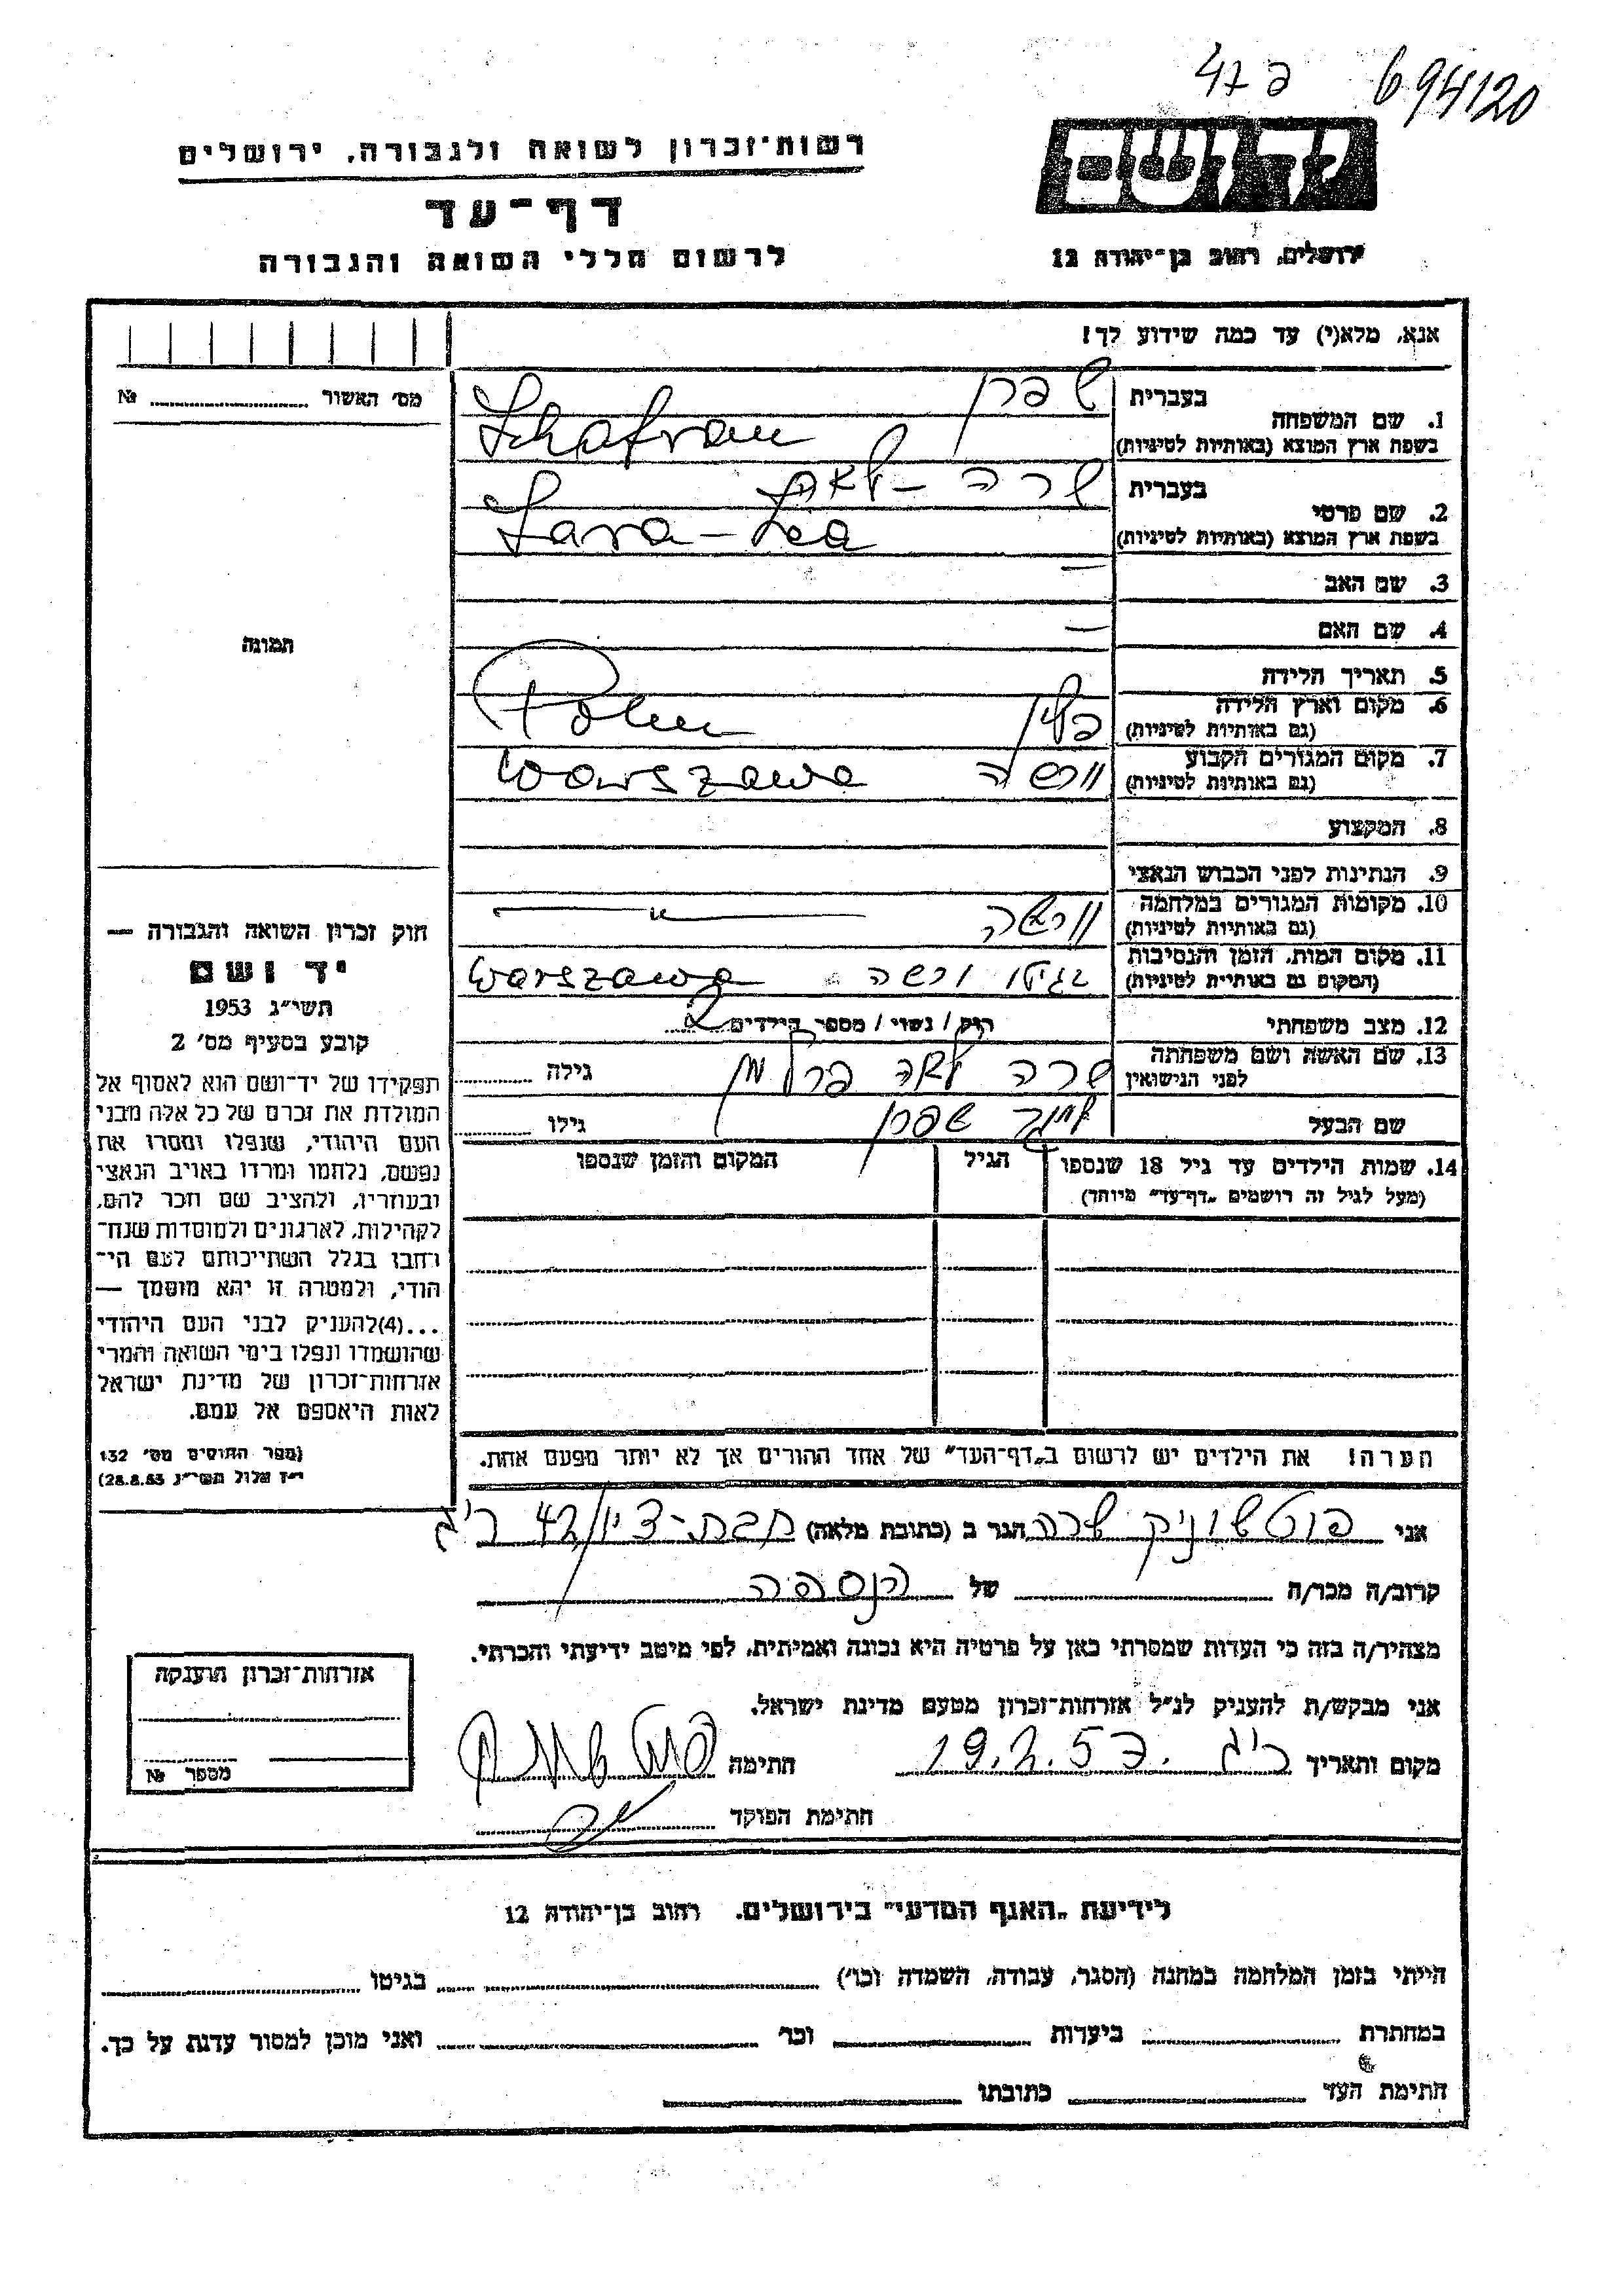 694120
פ 47
יד ושם
רשות־זכרון לשואה ולגבורה, ירושלים
דף־עד
לרשום חללי השואה והגבורה
ירושלים, רחוב בן־יהודה 12
אנא, מלא(י) עד כמה שידוע לך!
מס' האשור № 
בעברית שפרן
1. שם המשפחה
בשפת ארץ המוצא (באותיות לטיניות) Schafran
בעברית שרה - לאה
2. שם פרטי
בשפת ארץ המוצא (באותיות לטיניות) Sara-Lea
3. שם האב —
4. שם האם —
תמונה
5. תאריך הלידה
6. מקום וארץ הלידה פולין Polen
(גם באותיות לטיניות)
7. מקום המגורים הקבוע וורשה Warszawa
(גם באותיות לטיניות)
8. המקצוע
9. הנתינות לפני הכבוש הנאצי
10. מקומות המגורים במלחמה וורשה — " —
(גם באותיות לטיניות)
11. מקום המות, הזמן והנסיבות בגיטו ורשה Warszawa
(המקום גם באותיות לטיניות)
12. מצב משפחתי רוק / נשוי / מספר הילדים 2
13. שם האשה ושם משפחתה שרה לאה פרלמן גילה
לפני הנישואין
שם הבעל שפרן גילו
14. שמות הילדים עד גיל 18 שנספו הגיל המקום והזמן שנספו
(מעל לגיל זה רושמים „דף־עד" מיוחד)
הערה! את הילדים יש לרשום ב„דף־העד" של אחד ההורים אך לא יותר מפעם אחת.
חוק זכרון השואה והגבורה —
יד ושם
תשי"ג 1953
קובע בסעיף מס' 2
תפקידו של יד־ושם הוא לאסוף אל
המולדת את זכרם של כל אלה מבני
העם היהודי, שנפלו ומסרו את
נפשם, נלחמו ומרדו באויב הנאצי
ובעוזריו, ולהציב שם וזכר להם,
לקהילות, לארגונים ולמוסדות שנח־
רחבו בגלל השתייכותם לעם הי־
הודי, ולמטרה זו יהא מוסמך —
...(4)להעניק לבני העם היהודי
שהושמדו ונפלו בימי השואה והמרי
אזרחות־זכרון של מדינת ישראל
לאות היאספם אל עמם.
(ספר החוקים מס' 132
י"ז אלול תשי"ג 28.8.53)
אני פוטשניק שרה הגר ב (כתובת מלאה) חבת-ציון 42 ר"ג
קרוב/ה מכר/ה של הנספה
מצהיר/ה בזה כי העדות שמסרתי כאן על פרטיה היא נכונה ואמיתית, לפי מיטב ידיעתי והכרתי.
אני מבקש/ת להעניק לנ"ל אזרחות־זכרון מטעם מדינת ישראל.
מקום ותאריך ר"ג 19.2.57 חתימה
חתימת הפוקד
אזרחות־זכרון הוענקה
מספר №
לידיעת „האגף המדעי" בירושלים, רחוב בן־יהודה 12
הייתי בזמן המלחמה במחנה (הסגר, עבודה, השמדה וכו') בגיטו
במחתרת ביערות וכו' ואני מוכן למסור עדות על כך.
חתימת העד כתובתו